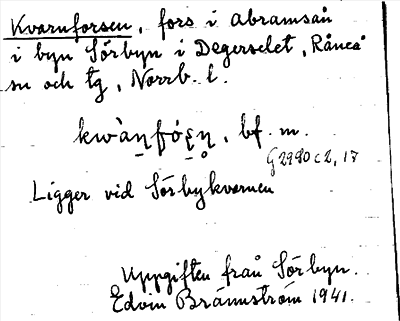 Kvarnforsen, fors i Abramsån
i byn Sörbyn i Degerselet, Råneå
sn och tg, Norrb. l.
bf. m.
G 2990 c 2, 17
Ligger vid Sörbykvarnen
Uppgiften från Sörbyn.
Edvin Brännström 1941.